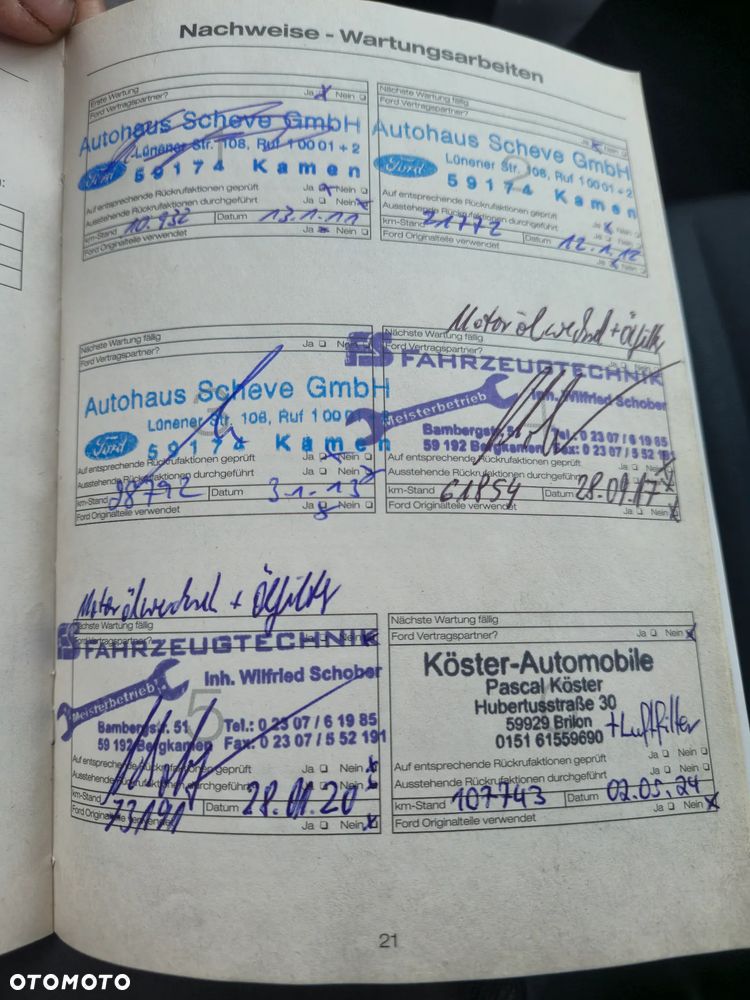 Nachweise - Wartungsarbeiten
Erste Wartung
Ford Vertragspartner? Ja Nein
Autohaus Scheve GmbH
Lünener Str. 108, Ruf 1 00 01 + 2
Ford 59174 Kamen
Auf entsprechende Rückrufaktionen geprüft Ja Nein
Ausstehende Rückrufaktionen durchgeführt Ja Nein
km-Stand 10.932 Datum 13.1.11
Ford Originalteile verwendet Ja Nein
Nächste Wartung fällig
Ford Vertragspartner? Ja Nein
Autohaus Scheve GmbH
Lünener Str. 108, Ruf 1 00 01 + 2
Ford 59174 Kamen
Auf entsprechende Rückrufaktionen geprüft Ja Nein
Ausstehende Rückrufaktionen durchgeführt Ja Nein
km-Stand 21772 Datum 12.1.12
Ford Originalteile verwendet Ja Nein
Nächste Wartung fällig
Ford Vertragspartner?
Ja Nein
Autohaus Scheve GmbH
Lünener Str. 108, Ruf 1 00 0
Ford 59174 Kamen
Auf entsprechende Rückrufaktionen geprüft Ja Nein
Ausstehende Rückrufaktionen durchgeführt Ja Nein
km-Stand 28792 Datum 31.1.13
Ford Originalteile verwendet Ja Nein
Motorölwechsel + Ölfilter
Nächste Wartung fällig
Ford Vertragspartner?
FS FAHRZEUGTECHNIK
Inh. Wilfried Schober
Meisterbetrieb
Bambergstr. 51 Tel.: 0 23 07 / 6 19 85
59 192 Bergkamen Fax: 0 23 07 / 5 52 191
Auf entsprechende Rückrufaktionen geprüft Ja Nein
Ausstehende Rückrufaktionen durchgeführt Ja Nein
km-Stand 61854 Datum 28.09.17
Ford Originalteile verwendet Ja Nein
Motorölwechsel + Ölfilter
Nächste Wartung fällig
Ford Vertragspartner?
FS FAHRZEUGTECHNIK
Inh. Wilfried Schober
Meisterbetrieb
5
Bambergstr. 51 Tel.: 0 23 07 / 6 19 85
59 192 Bergkamen Fax: 0 23 07 / 5 52 191
Auf entsprechende Rückrufaktionen geprüft Ja Nein
Ausstehende Rückrufaktionen durchgeführt Ja Nein
km-Stand 73191 Datum 28.01.20
Ford Originalteile verwendet Ja Nein
Nächste Wartung fällig
Ford Vertragspartner? Ja Nein
Köster-Automobile
Pascal Köster
Hubertusstraße 30
59929 Brilon
0151 61559690 + Luftfilter
Auf entsprechende Rückrufaktionen geprüft Ja Nein
Ausstehende Rückrufaktionen durchgeführt Ja Nein
km-Stand 107743 Datum 02.05.24
Ford Originalteile verwendet Ja Nein
21
OTOMOTO